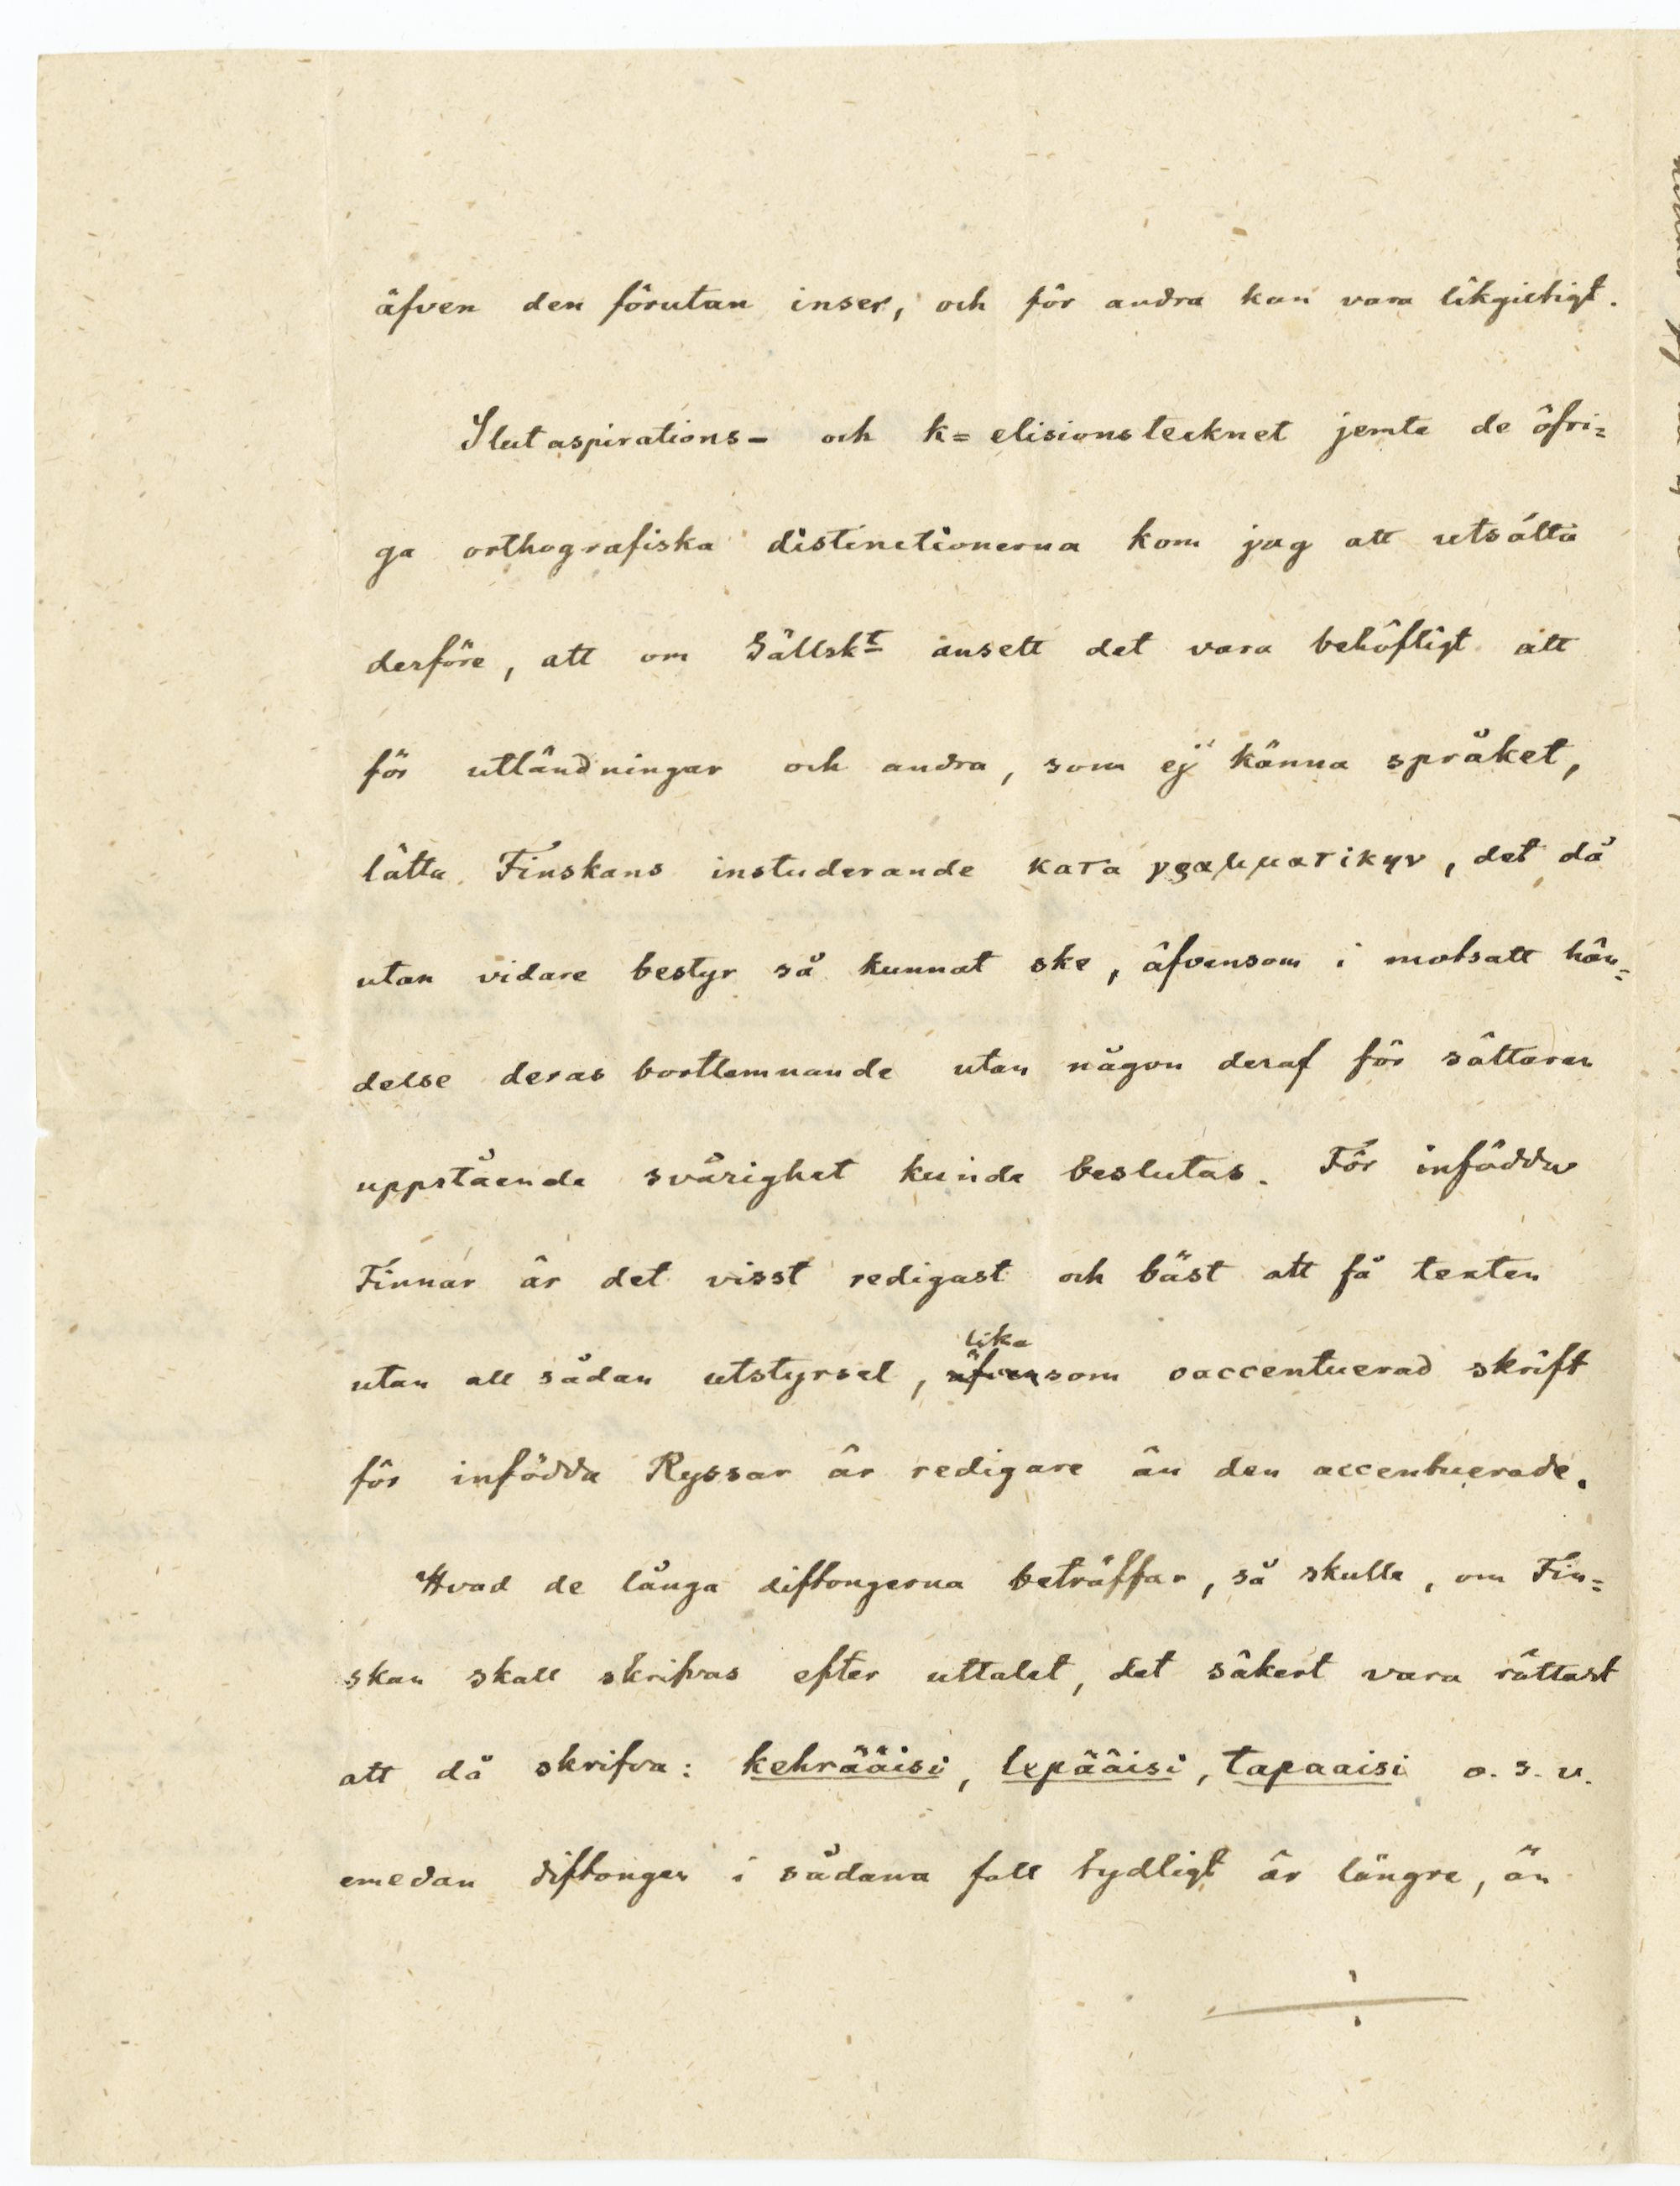 äfven den förutan inser, och för andra kan vara likgiltigt.
Slutaspirations- och k= elisionstecknet jemte de öfri=
ga orthografiska distinctionerna kom jag att utsätta
derföre, att om Sällskt ansett det vara behöfligt att
för utländningar och andra, som ej känna språket,
lätta Finskans instuderande κατα γραμματικην, det då
utan vidare bestyr så kunnat ske, äfvensom i motsatt hän=
delse deras bortlemnande utan någon deraf för sättaren
uppstående svårighet kunde beslutas. För infödda
Finnar är det visst redigast och bäst att få texten
utan all sådan utstyrsel, äfven lika som oaccentuerad skrift
för infödda Ryssar är redigare än den accentuerade.
Hvad de långa diftongerna beträffar, så skulle, om Fin=
skan skall skrifvas efter uttalet, det säkert vara rättast
att då skrifva: kehrääisi, lepääisi, tapaaisi o. s. v.
emedan diftongen i sådana fall tydligt är längre, än